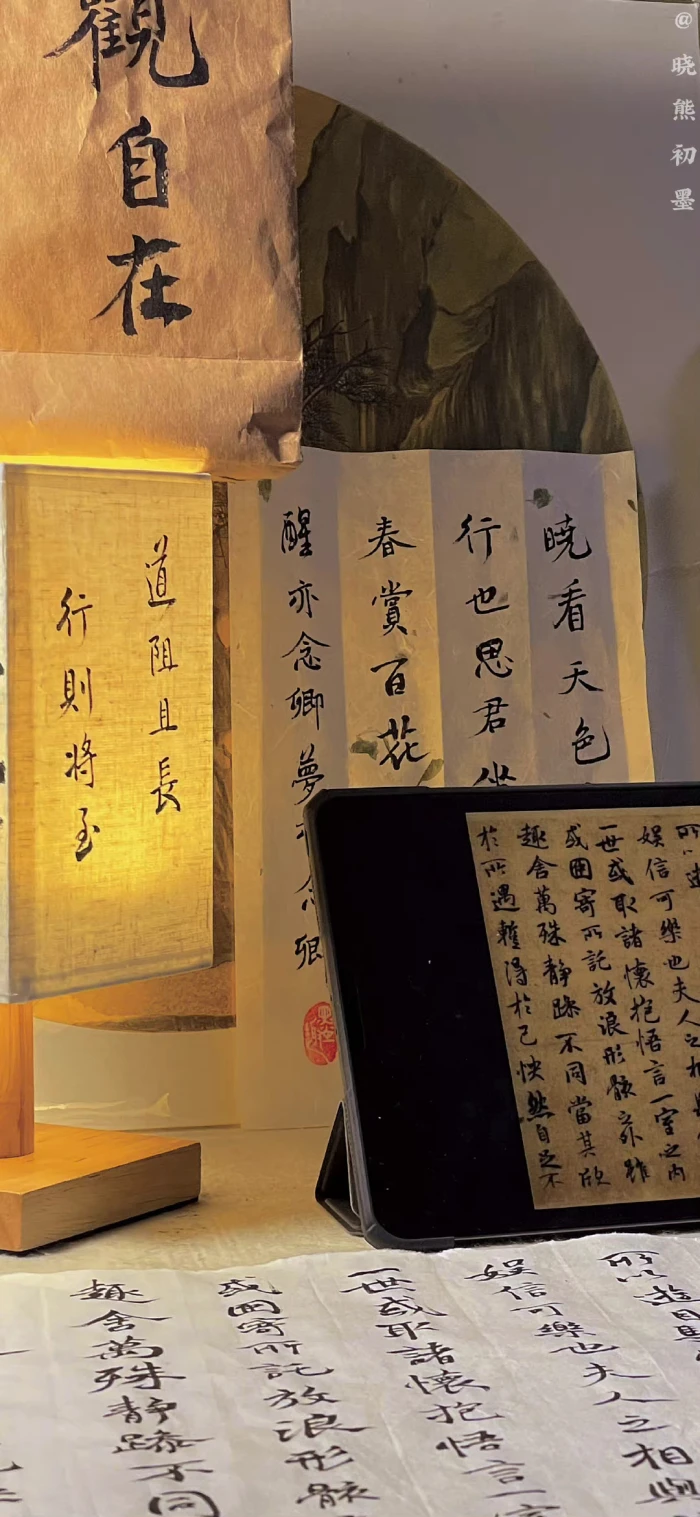 @晓熊初墨
觀自在
道阻且長
行則将至
曉看天色
行也思君坐
春賞百花
醒亦念卿夢亦念卿
所以遊
娱信可樂也夫人之相與
一世或取諸懷抱悟言一室之内
或因寄所託放浪形骸之外雖
趣舍萬殊静躁不同當其欣
於所遇蹔得於己快然自足不
所以遊目騁
娱信可樂也夫人之相與
一世或取諸懷抱悟言一室
或因寄所託放浪形骸
趣舍萬殊静躁不同